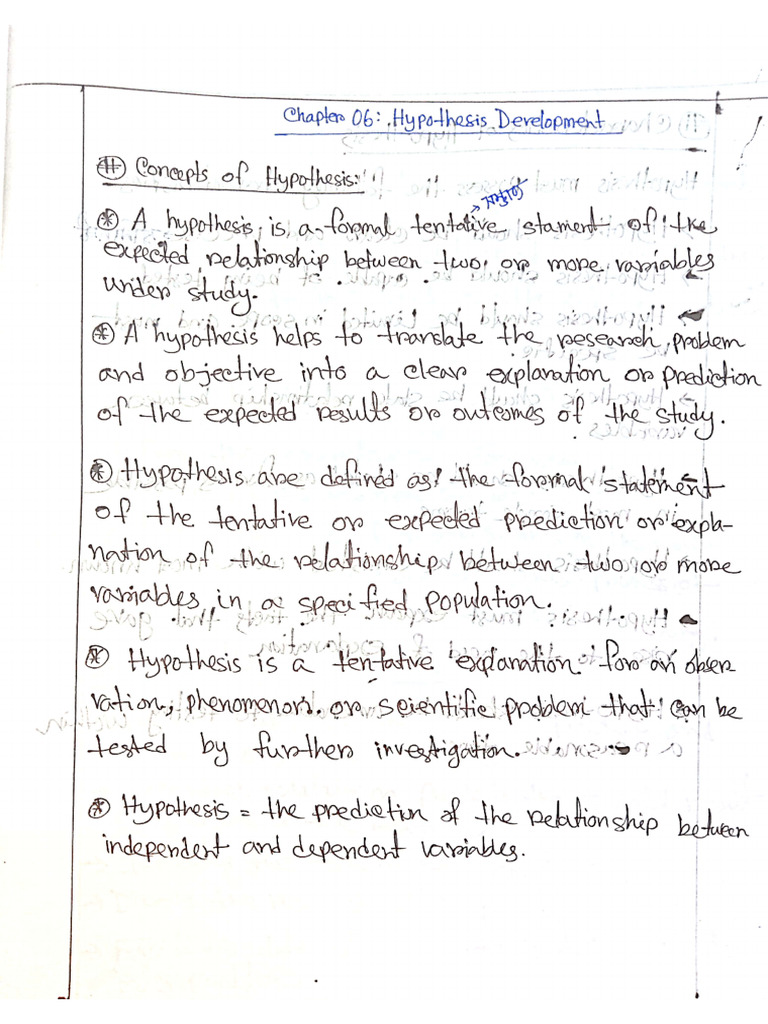 Chapter 06: Hypothesis Development
(#) Concepts of Hypothesis:
* A hypothesis is a formal tentative stament of the
expected relationship between two or more variables
under study.
* A hypothesis helps to translate the research problem
and objective into a clear explanation or prediction
of the expected results or outcomes of the study.
* Hypothesis are defined as the formal statement
of the tentative or expected prediction or expla-
nation of the relationship between two or more
variables in a specified population.
* Hypothesis is a tentative explanation for an obser
vation, phenomenon or scientific problem that can be
tested by further investigation.
* Hypothesis = the prediction of the relationship between
independent and dependent variables.